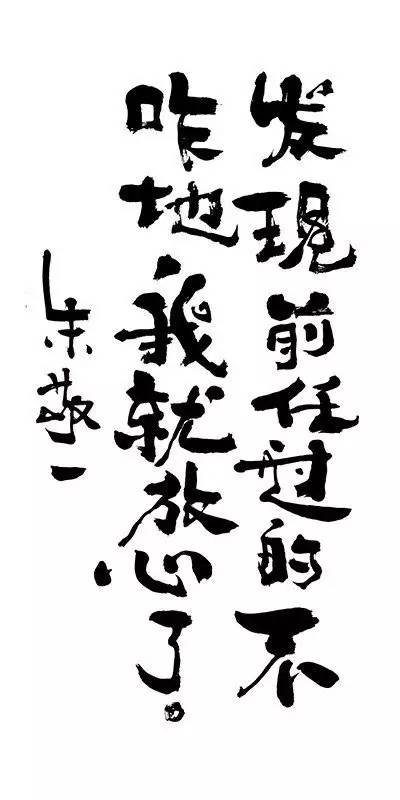 发现前任过的不
咋地我就放心了。
朱敬一